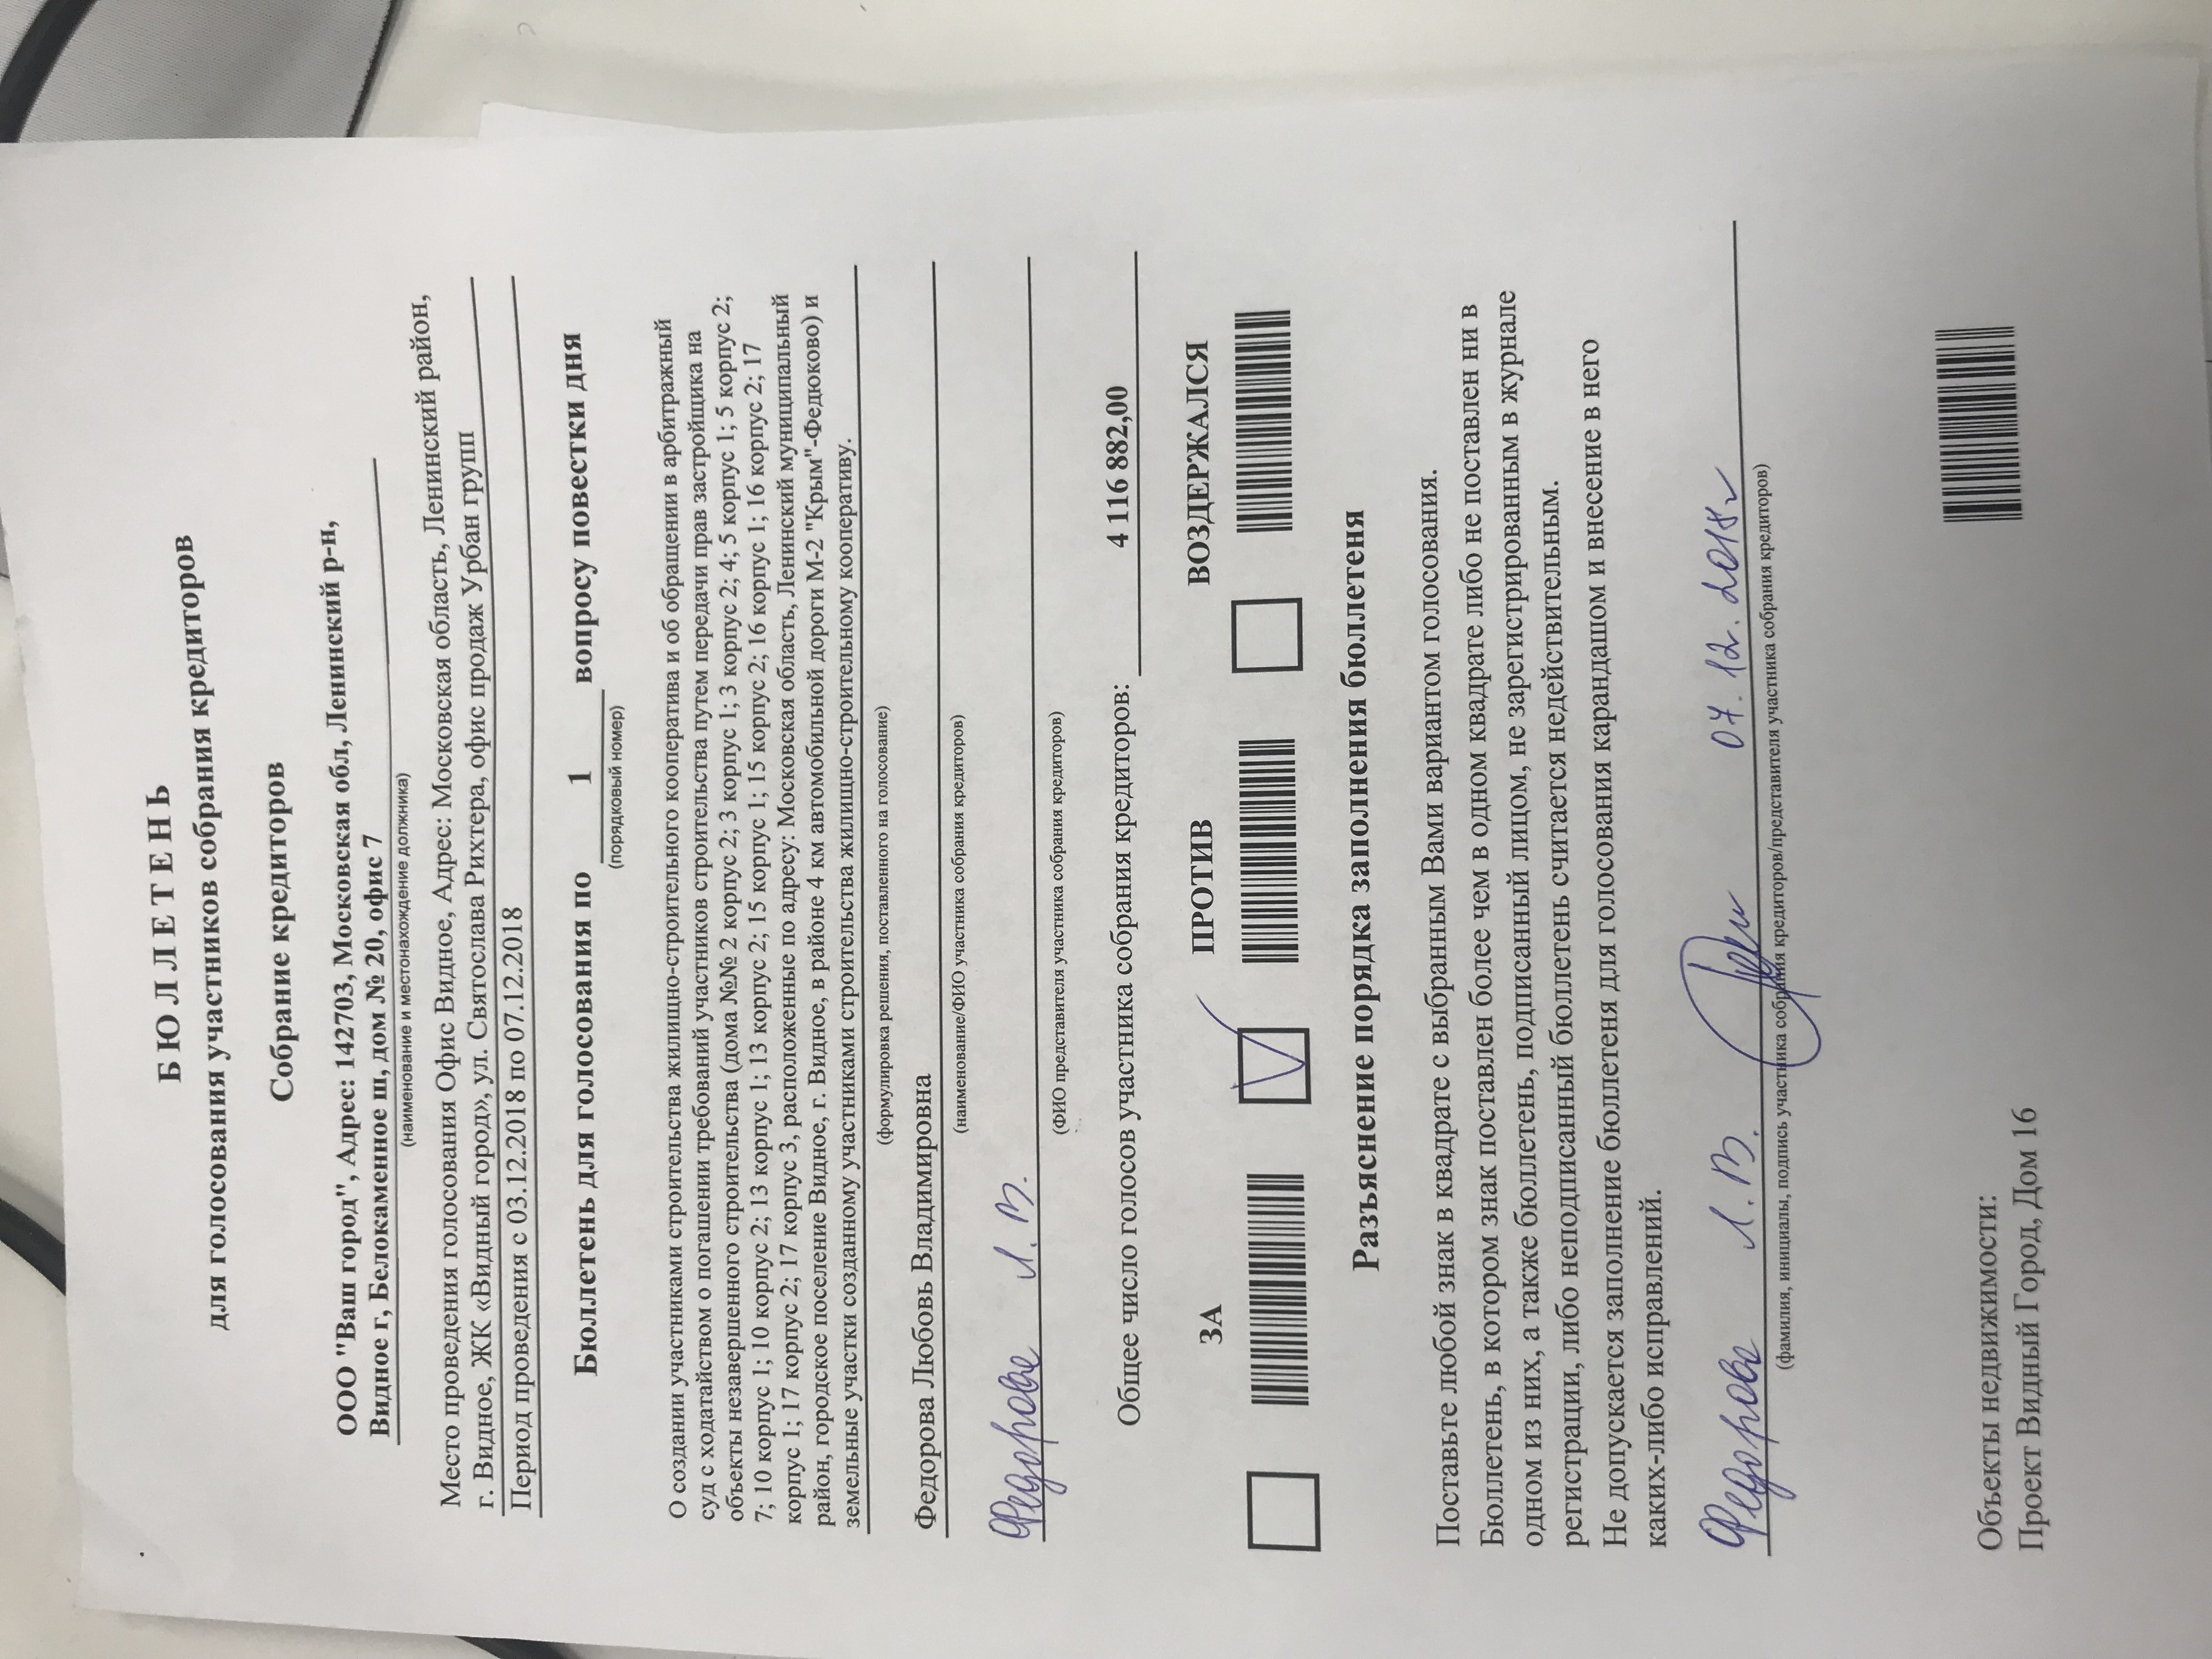 БЮЛЛЕТЕНЬ
для голосования участников собрания кредиторов
Собрание кредиторов
ООО "Ваш город", Адрес: 142703, Московская обл, Ленинский р-н,
Видное г, Белокаменное ш, дом № 20, офис 7
(наименование и местонахождение должника)
Место проведения голосования Офис Видное, Адрес: Московская область, Ленинский район,
г. Видное, ЖК «Видный город», ул. Святослава Рихтера, офис продаж Урбан групп
Период проведения с 03.12.2018 по 07.12.2018
Бюллетень для голосования по 1 вопросу повестки дня
(порядковый номер)
О создании участниками строительства жилищно-строительного кооператива и об обращении в арбитражный
суд с ходатайством о погашении требований участников строительства путем передачи прав застройщика на
объекты незавершенного строительства (дома №№ 2 корпус 2; 3 корпус 1; 3 корпус 2; 4; 5 корпус 1; 5 корпус 2;
7; 10 корпус 1; 10 корпус 2; 13 корпус 1; 13 корпус 2; 15 корпус 1; 15 корпус 2; 16 корпус 1; 16 корпус 2; 17
корпус 1; 17 корпус 2; 17 корпус 3, расположенные по адресу: Московская область, Ленинский муниципальный
район, городское поселение Видное, г. Видное, в районе 4 км автомобильной дороги М-2 "Крым"-Федюково) и
земельные участки созданному участниками строительства жилищно-строительному кооперативу.
(формулировка решения, поставленного на голосование)
Федорова Любовь Владимировна
(наименование/ФИО участника собрания кредиторов)
Федорова Л. В.
(ФИО представителя участника собрания кредиторов)
Общее число голосов участника собрания кредиторов: 4 116 882,00
ЗА ПРОТИВ ВОЗДЕРЖАЛСЯ
Разъяснение порядка заполнения бюллетеня
Поставьте любой знак в квадрате с выбранным Вами вариантом голосования.
Бюллетень, в котором знак поставлен более чем в одном квадрате либо не поставлен ни в
одном из них, а также бюллетень, подписанный лицом, не зарегистрированным в журнале
регистрации, либо неподписанный бюллетень считается недействительным.
Не допускается заполнение бюллетеня для голосования карандашом и внесение в него
каких-либо исправлений.
Федорова Л. В. 07.12.2018г
(фамилия, инициалы, подпись участника собрания кредиторов/представителя участника собрания кредиторов)
Объекты недвижимости:
Проект Видный Город, Дом 16